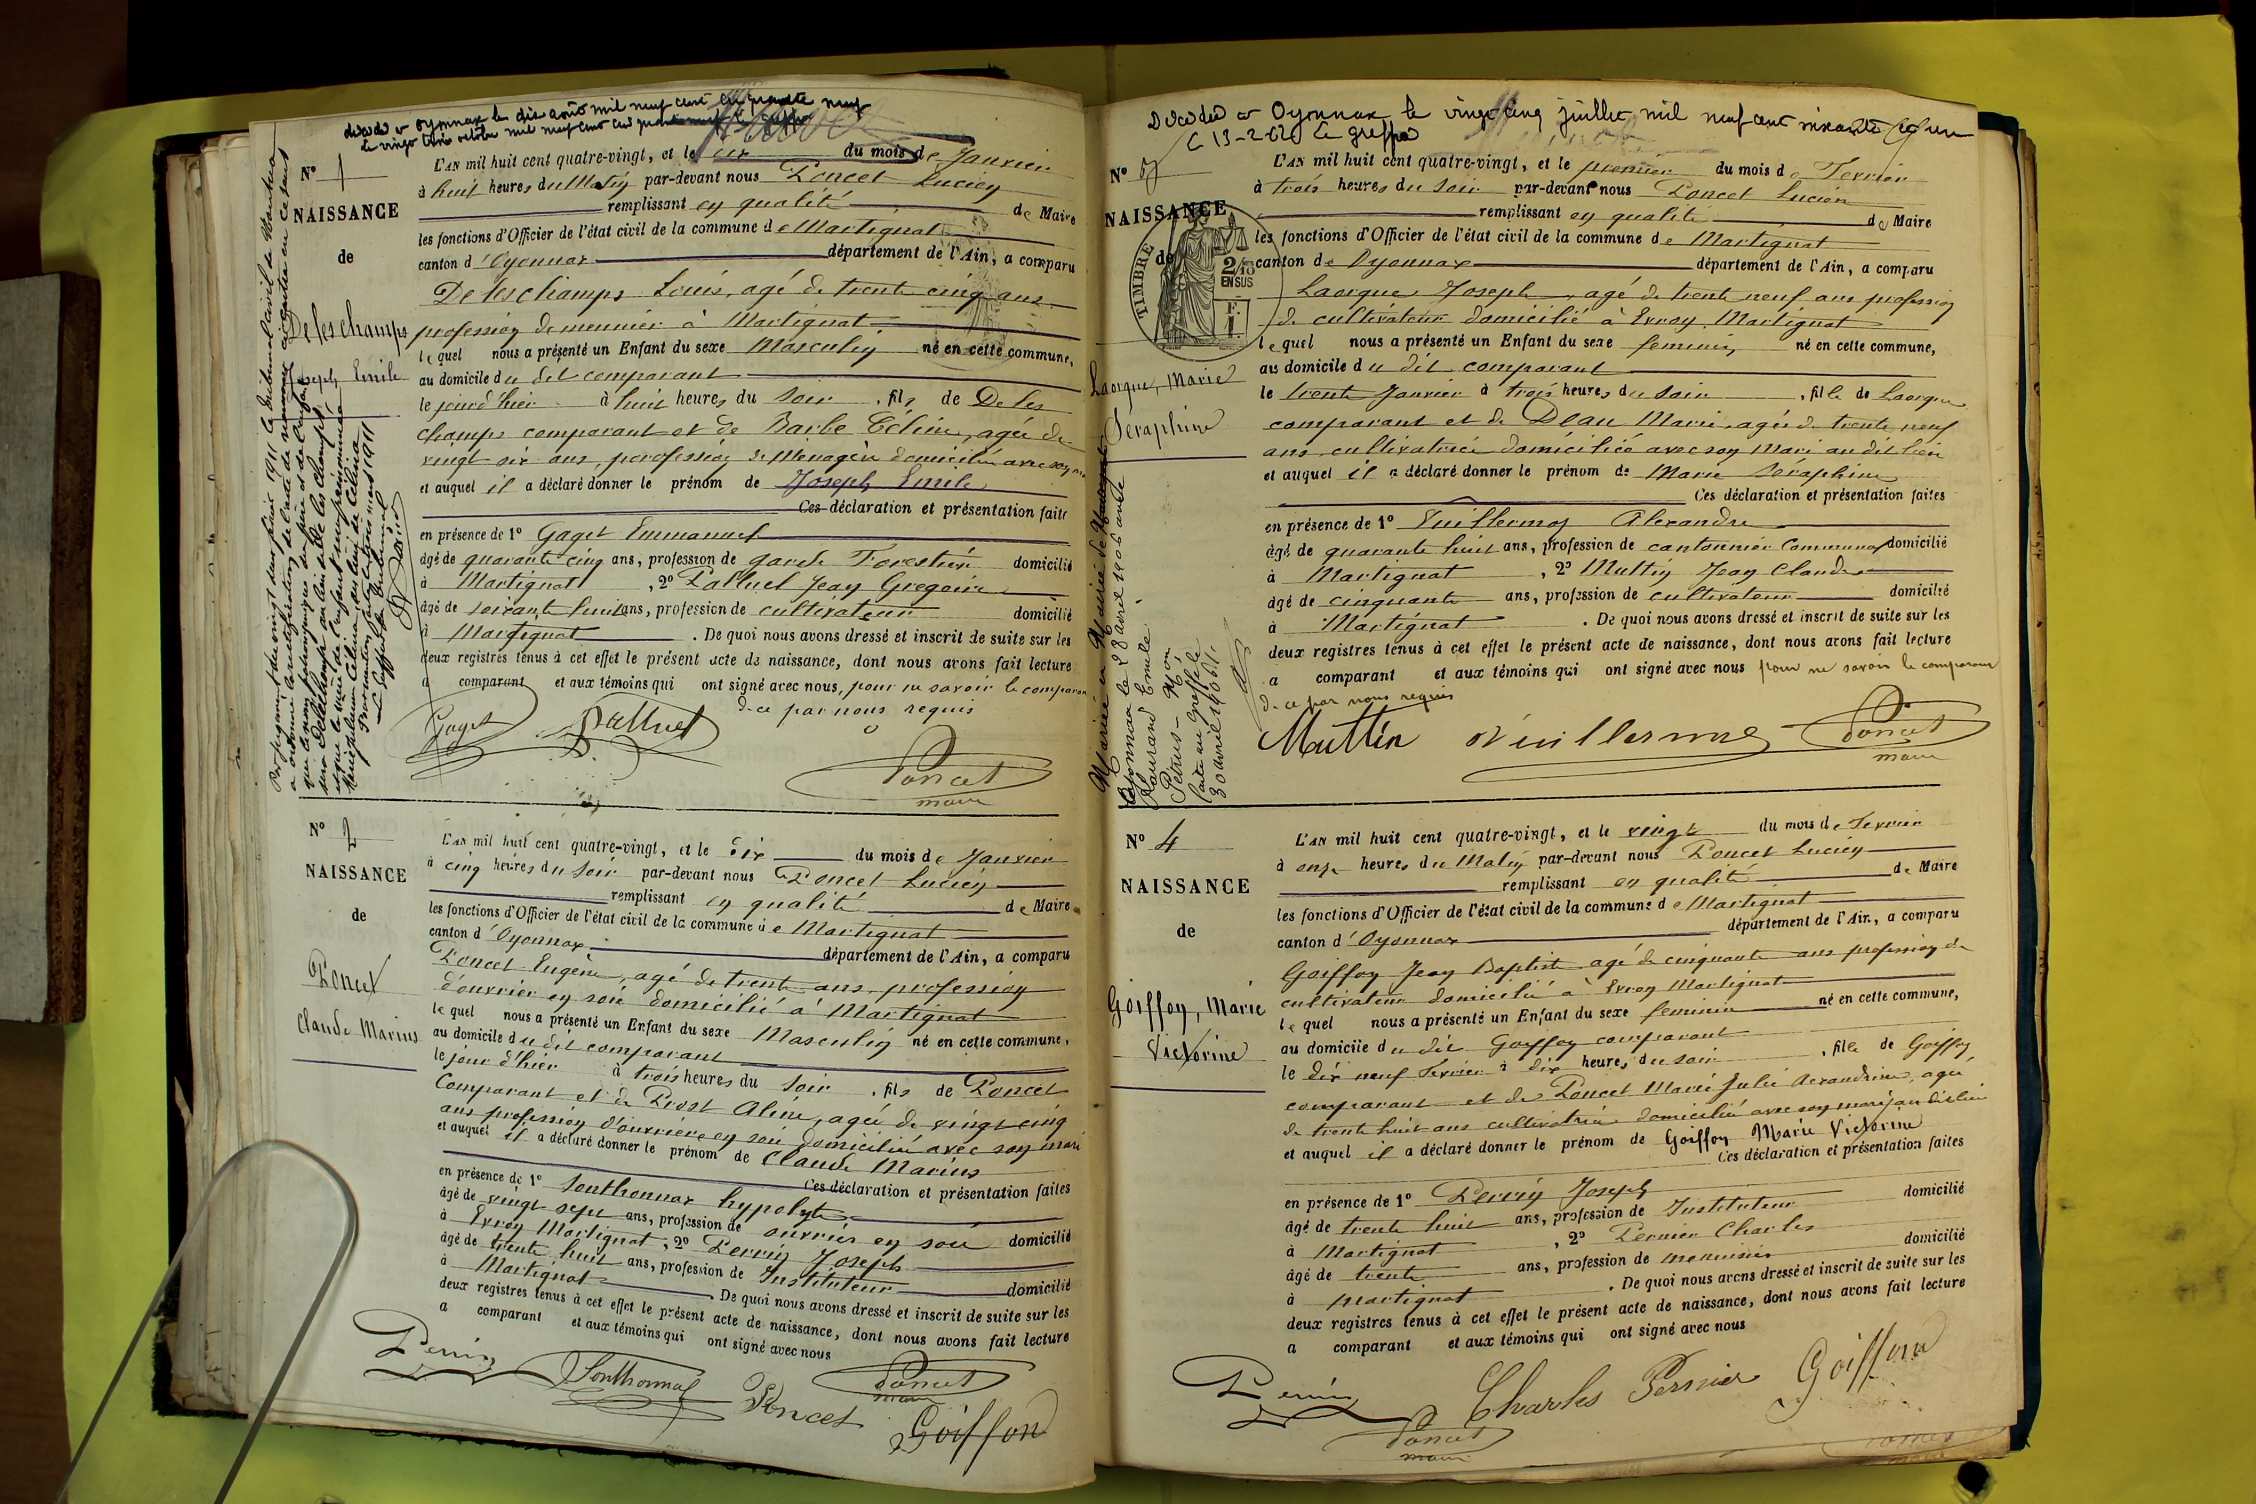 décédé à Oyonnax le dix août mil neuf cent cinquante neuf
N° 1
NAISSANCE
de
Deleschamps
Joseph Emile
L'AN mil huit cent quatre-vingt, et le six du mois de Janvier
à huit heures du Matin par-devant nous Poncet Lucien
remplissant en qualité de Maire
les fonctions d'Officier de l'état civil de la commune de Martignat
canton d'Oyonnax département de l'Ain, a comparu
Deleschamps Louis, agé de trente cinq ans
profession de meunier à Martignat
lequel nous a présenté un Enfant du sexe Masculin né en cette commune,
au domicile du dit comparant
le jour d'hier à huit heures du soir, fils de Deles
champs comparant et de Barbe Céline, agée de
vingt six ans, profession de Menagère domiciliée avec son
et auquel il a déclaré donner le prénom de Joseph Emile
Ces déclaration et présentation faites
en présence de 1° Gaget Emmanuel
âgé de quarante cinq ans, profession de garde Forestier domicilié
à Martignat, 2° Palluel Jean Gregoire
âgé de soixante huit ans, profession de cultivateur domicilié
à Martignat. De quoi nous avons dressé et inscrit de suite sur les
deux registres tenus à cet effet le présent acte de naissance, dont nous avons fait lecture
a comparant et aux témoins qui ont signé avec nous, pour ne savoir le comparant
de ce par nous requis
Gaget Palluel
Poncet
maire
N° 2
NAISSANCE
de
Poncet
Claude Marius
L'AN mil huit cent quatre-vingt, et le dix du mois de Janvier
à cinq heures du soir par-devant nous Poncet Lucien
remplissant en qualité de Maire
les fonctions d'Officier de l'état civil de la commune de Martignat
canton d'Oyonnax département de l'Ain, a comparu
Poncet Eugène, agé de trente ans, profession
d'ouvrier en soie domicilié à Martignat
lequel nous a présenté un Enfant du sexe Masculin né en cette commune,
au domicile du dit comparant
le jour d'hier à trois heures du soir, fils de Poncet
Comparant et de Prost Aline, agée de vingt cinq
ans profession d'ouvrière en soie domiciliée avec son mari
et auquel il a déclaré donner le prénom de Claude Marius
Ces déclaration et présentation faites
en présence de 1° Sonthonnax hypolyte
âgé de vingt sept ans, profession de ouvrier en soie domicilié
à Evron Martignat, 2° Perrin Joseph
âgé de trente huit ans, profession de Instituteur domicilié
à Martignat. De quoi nous avons dressé et inscrit de suite sur les
deux registres tenus à cet effet le présent acte de naissance, dont nous avons fait lecture
a comparant et aux témoins qui ont signé avec nous
Perrin Sonthonnax Poncet
Poncet
maire
Goiffon
Décédée à Oyonnax le vingt cinq juillet mil neuf cent soixante et un
Le greffier
N° 3
NAISSANCE
de
TIMBRE
2/10
EN SUS
Laorgue, Marie
Séraphine
L'AN mil huit cent quatre-vingt, et le premier du mois de Fevrier
à trois heures du soir par-devant nous Poncet Lucien
remplissant en qualité de Maire
les fonctions d'Officier de l'état civil de la commune de Martignat
canton de Oyonnax département de l'Ain, a comparu
Laorgue Joseph, agé de trente neuf ans profession
de cultivateur domicilié à Evron Martignat
lequel nous a présenté un Enfant du sexe feminin né en cette commune,
au domicile du dit comparant
le trente Janvier à trois heures du soir, fille de Laorgue
comparant et de Dean Marie agée de trente neuf
ans cultivatrice domiciliée avec son Mari au dit lieu
et auquel il a déclaré donner le prénom de Marie Séraphine
Ces déclaration et présentation faites
en présence de 1° Vuillermoz Alexandre
âgé de quarante huit ans, profession de cantonnier Communal domicilié
à Martignat, 2° Muttin Jean Claude
âgé de cinquante ans, profession de cultivateur domicilié
à Martignat. De quoi nous avons dressé et inscrit de suite sur les
deux registres tenus à cet effet le présent acte de naissance, dont nous avons fait lecture
a comparant et aux témoins qui ont signé avec nous pour ne savoir le comparant
de ce par nous requis
Muttin Vuillermoz Poncet
maire
N° 4
NAISSANCE
de
Goiffon, Marie
Victorine
L'AN mil huit cent quatre-vingt, et le vingt du mois de Fevrier
à onze heures du Matin par-devant nous Poncet Lucien
remplissant en qualité de Maire
les fonctions d'Officier de l'état civil de la commune de Martignat
canton d'Oyonnax département de l'Ain, a comparu
Goiffon Jean Baptiste agé de cinquante ans profession de
cultivateur domicilié à Evron Martignat
lequel nous a présenté un Enfant du sexe feminin né en cette commune,
au domicile du dit Goiffon comparant
le dix neuf Fevrier à dix heures du soir, fille de Goiffon
comparant et de Poncet Marie Julie Alexandrine, agée
de trente huit ans cultivatrice domiciliée avec son mari au dit lieu
et auquel il a déclaré donner le prénom de Goiffon Marie Victorine
Ces déclaration et présentation faites
en présence de 1° Perrin Joseph
âgé de trente huit ans, profession de Instituteur domicilié
à Martignat, 2° Pernier Charles
âgé de trente ans, profession de menuisier domicilié
à Martignat. De quoi nous avons dressé et inscrit de suite sur les
deux registres tenus à cet effet le présent acte de naissance, dont nous avons fait lecture
a comparant et aux témoins qui ont signé avec nous
Perrin Charles Pernier Goiffon
Poncet
maire